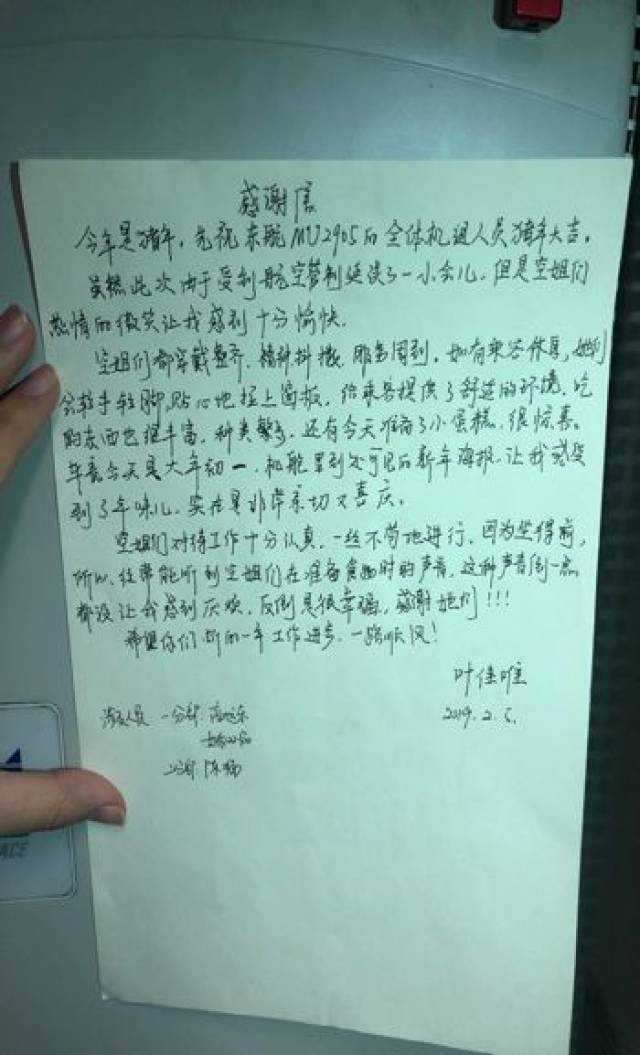 感谢信
今年是猪年，先祝东航MU2905的全体机组人员猪年大吉。
虽然此次由于受到航空管制延误了一小会儿，但是空姐们
热情的微笑让我感到十分愉快。
空姐们都穿戴整齐、精神抖擞、服务周到，如有乘客休息，她们
会轻手轻脚，贴心地拉上窗板，给乘客提供了舒适的环境。吃
的东西也很丰富，种类繁多，还有今天准备了小蛋糕，很惊喜。
今天是大年初一，机舱里到处可见的新年海报，让我感受
到了年味儿，实在是非常亲切又喜庆。
空姐们对待工作十分认真，一丝不苟地进行，因为坐得前，
所以，经常能听到空姐们在准备食物时的声音，这种声音倒一点
都没让我感到厌烦，反倒是很幸福，感谢她们！！！
希望你们新的一年工作进步，一路顺风！
叶佳唯
2019.2.5.
一分部
二分部
ACE